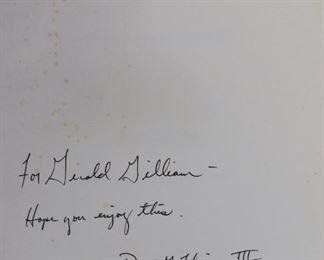 For Gerald Gilliam –
Hope you enjoy this.
III